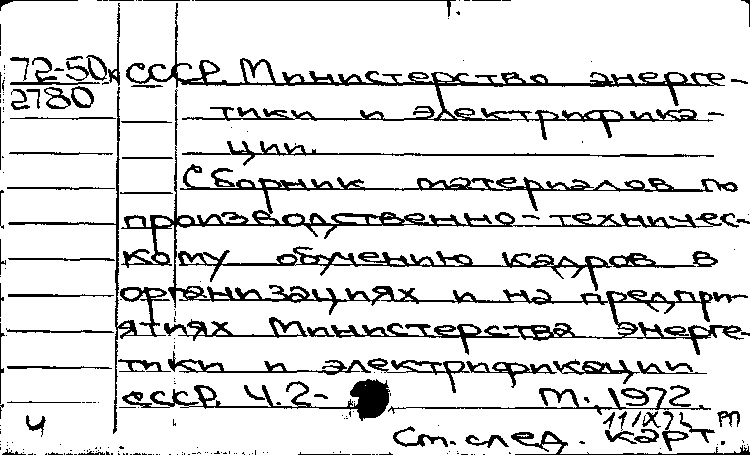 72-50к СССР. Министерство энерге-
2780
тики и электрифика-
ции.
Сборник материалов по
производственно-техничес-
кому обучению кадров в
организациях и на предпри-
ятиях Министерства энерге-
тики и электрификации
СССР. Ч.2- М., 1972.
11/IX72 РП
Ч
См. след. карт.